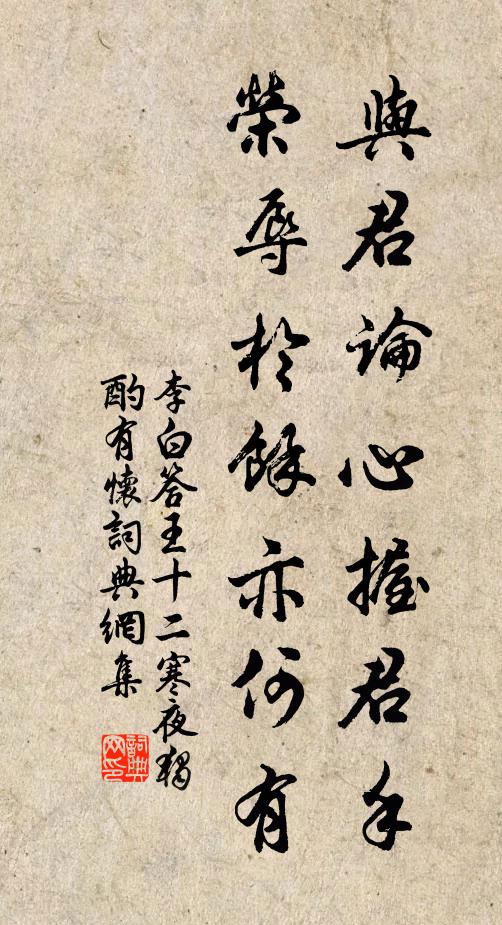 與君論心握君手
榮辱於餘亦何有
李白答王十二寒夜獨
酌有懷詞典網集
詞典
网印